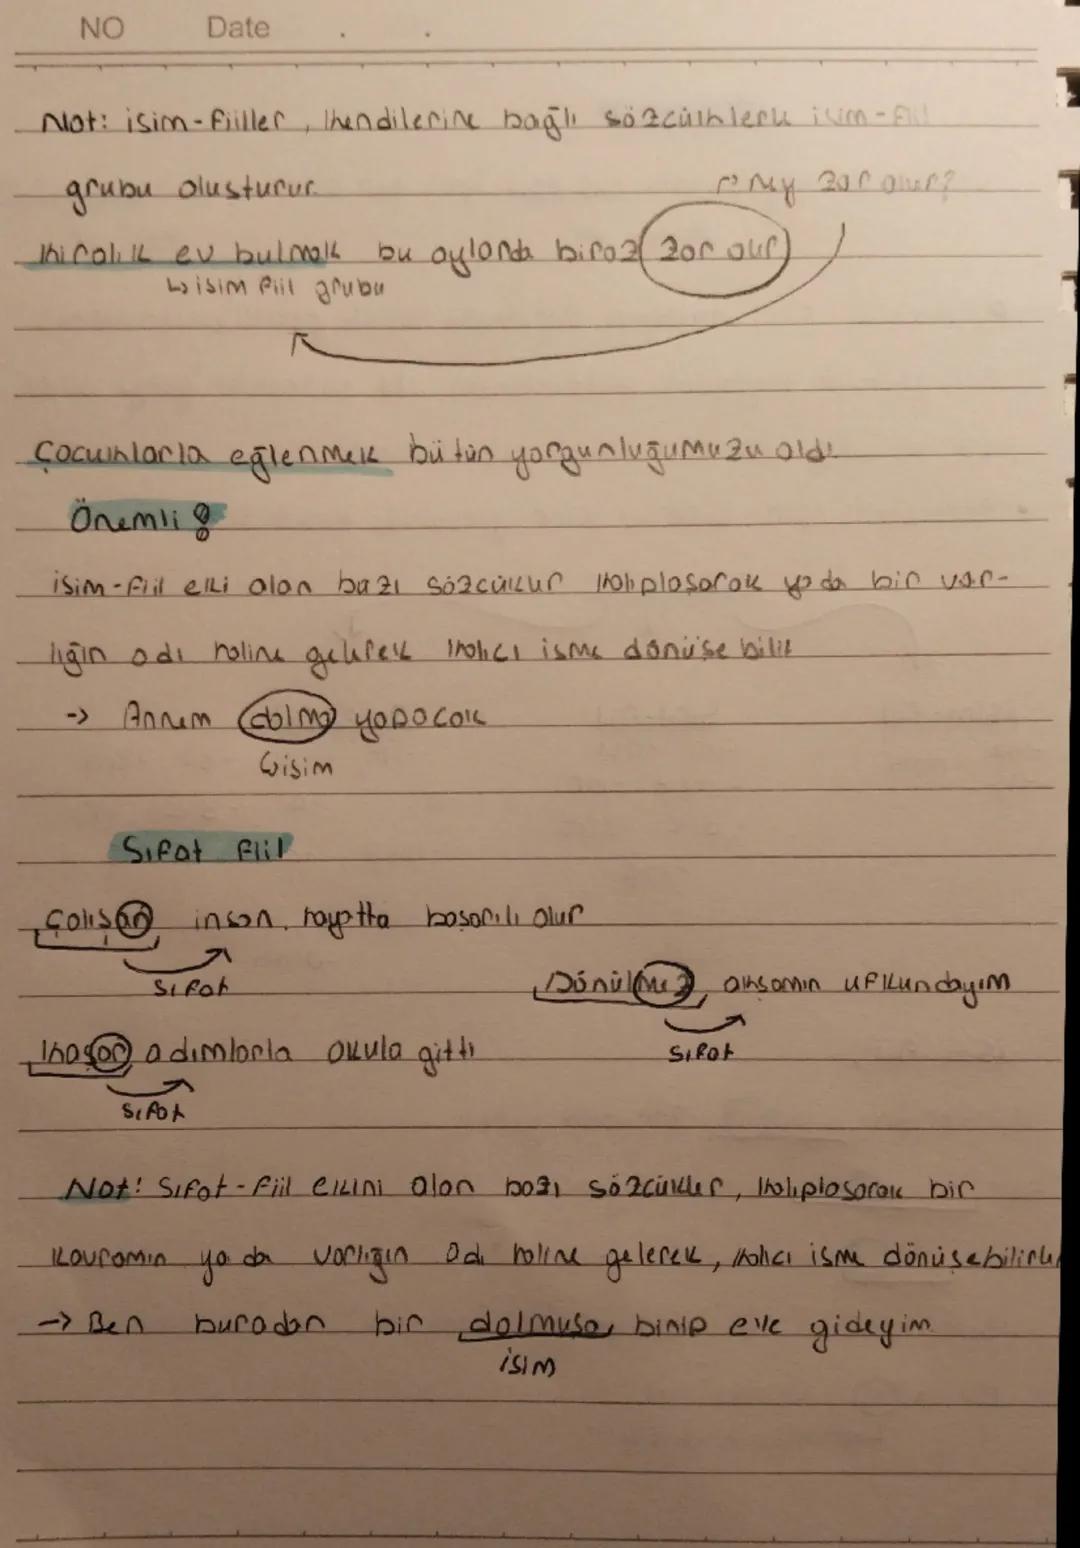 NO Date . .
Not: isim-fiiller, kendilerine bağlı sözcüklerle isim-fiil
grubu oluşturur.
↱ Ney zor olur?
kiralık ev bulmak bu aylarda biraz zor olur
↳ isim fiil grubu
Çocuklarla eğlenmek bütün yorgunluğumuzu aldı.
Önemli !
isim-fiil eki alan bazı sözcükler kalıplaşarak ya da bir var-
lığın adı haline gelerek kalıcı isme dönüşebilir
-> Annem dolma yapacak
↳ isim
Sıfat fiil
Çalışan insan, hayatta başarılı olur
sıfat
Dönülmez akşamın ufkundayım
sıfat
koşar adımlarla okula gitti
sıfat
Not: Sıfat-fiil ekini alan bazı sözcükler, kalıplaşarak bir
kavramın ya da varlığın adı haline gelerek, kalıcı isme dönüşebilirler
-> Ben buradan bir dolmuşa binip eve gideyim.
isim